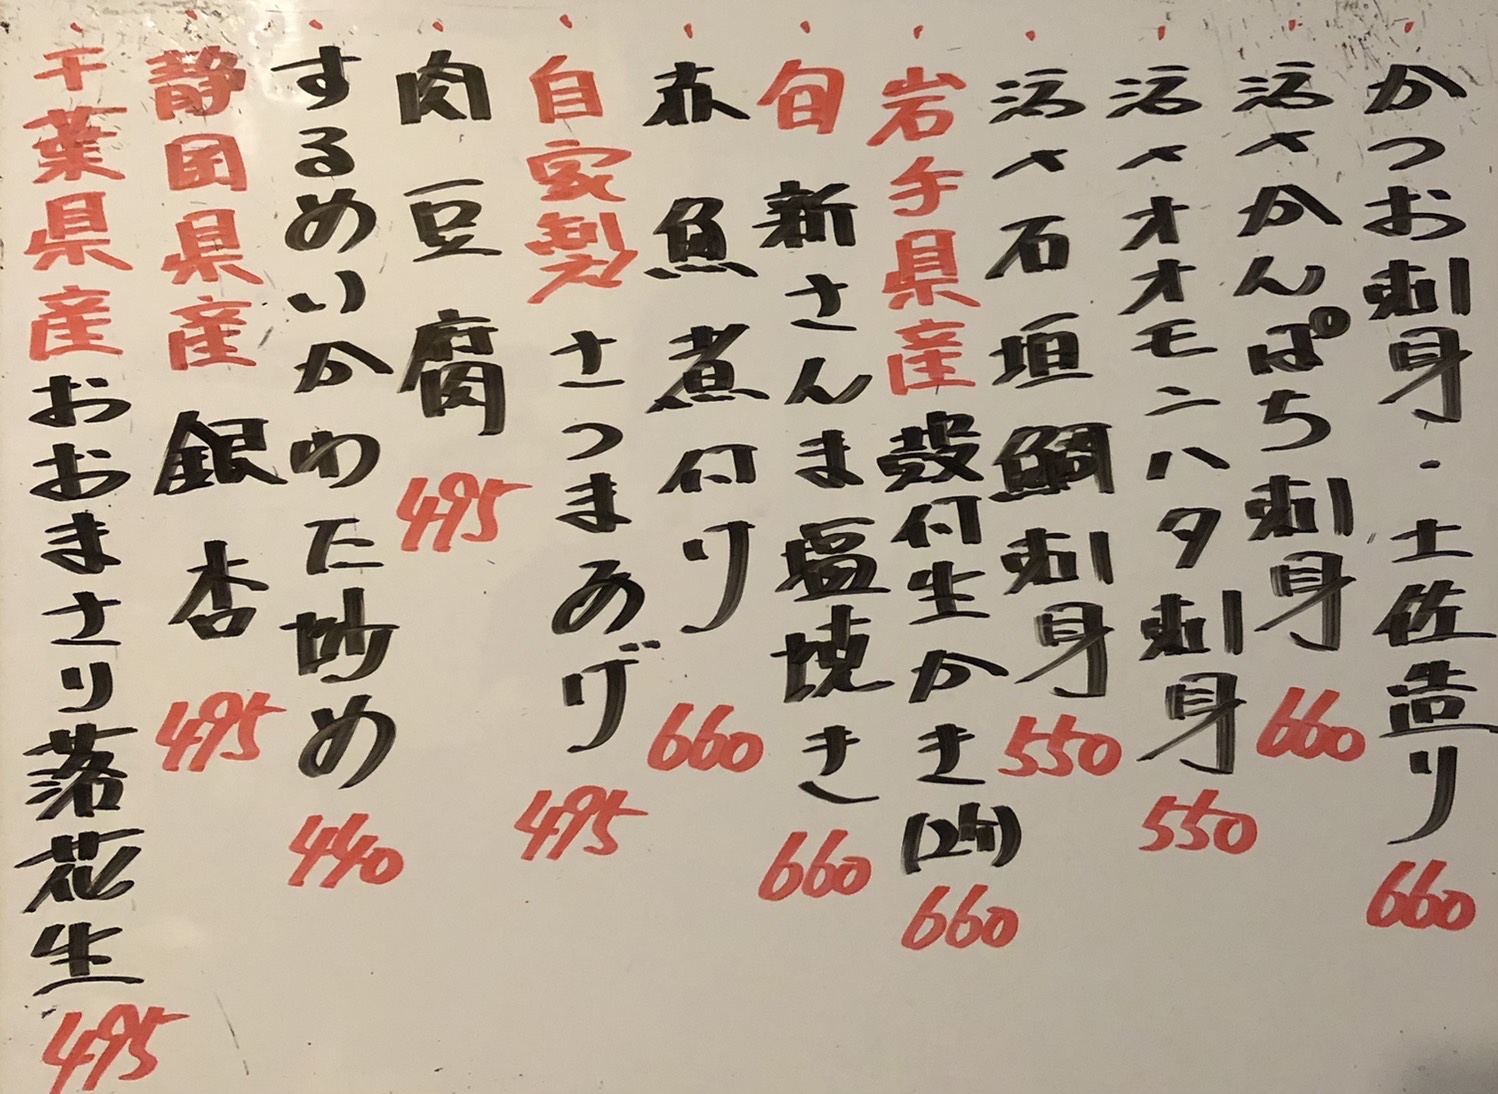 かつお刺身・土佐造り 660
活〆かんぱち刺身 660
活〆オオモンハタ刺身 550
活〆石垣鯛刺身 550
岩手県産殻付生かき(2ケ) 660
旬 新さんま塩焼き 660
赤魚煮付け 660
自家製 さつまあげ 495
肉豆腐 495
するめいかわた炒め 440
静岡県産 銀杏 495
千葉県産おおまさり落花生 495